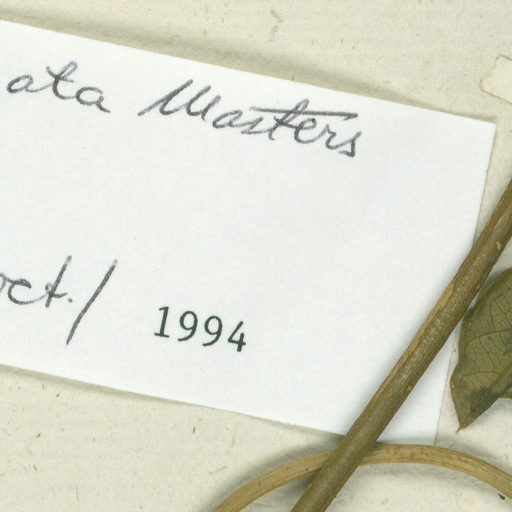 ata Masters
oct./ 1994